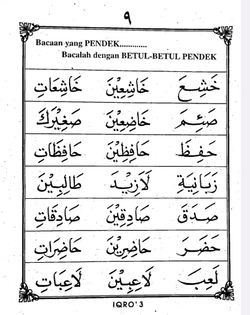 ٩
Bacaan yang PENDEK.............
Bacalah dengan BETUL-BETUL PENDEK
خَشِعَ خَاشِعِيْنَ خَاشِعَاتِ
صَئِمَ خَاضِعِيْنَ صَغِيْرَكَ
حَفِظَ حَافِظِيْنَ حَافِظَاتِ
زَبَانِيَةَ لَازِيْدَ طَالِبِيْنَ
صَدَقَ صَادِقِيْنَ صَادِقَاتِ
حَضَرَ حَاضِرِيْنَ حَاضِرَاتِ
لَعِبَ لَاعِبِيْنَ لَاعِبَاتِ
IQRO' 3